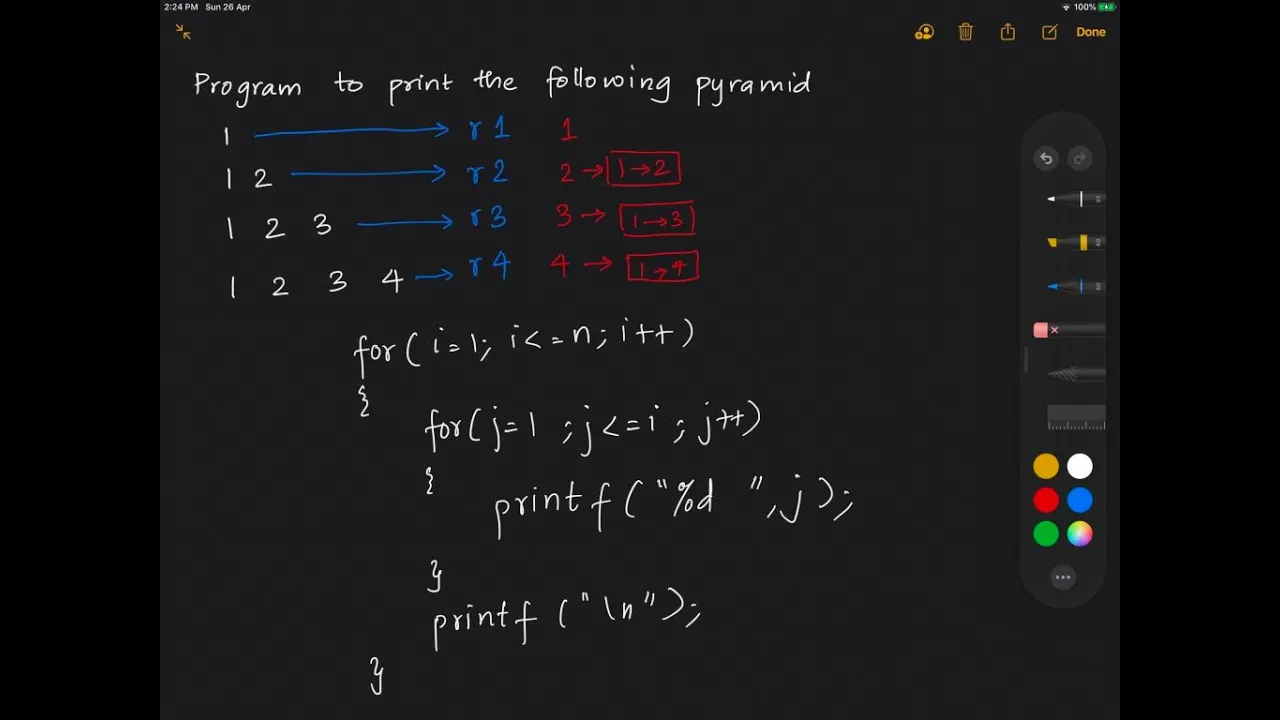 2:24 PM Sun 26 Apr 100%
Done
Program to print the following pyramid
1 → r1 1
1 2 → r2 2 → 1→2
1 2 3 → r3 3 → 1→3
1 2 3 4 → r4 4 → 1→4
for(i=1; i<=n; i++)
{
for(j=1 ; j<=i ; j++)
{
printf("%d ",j);
}
printf("\n");
}